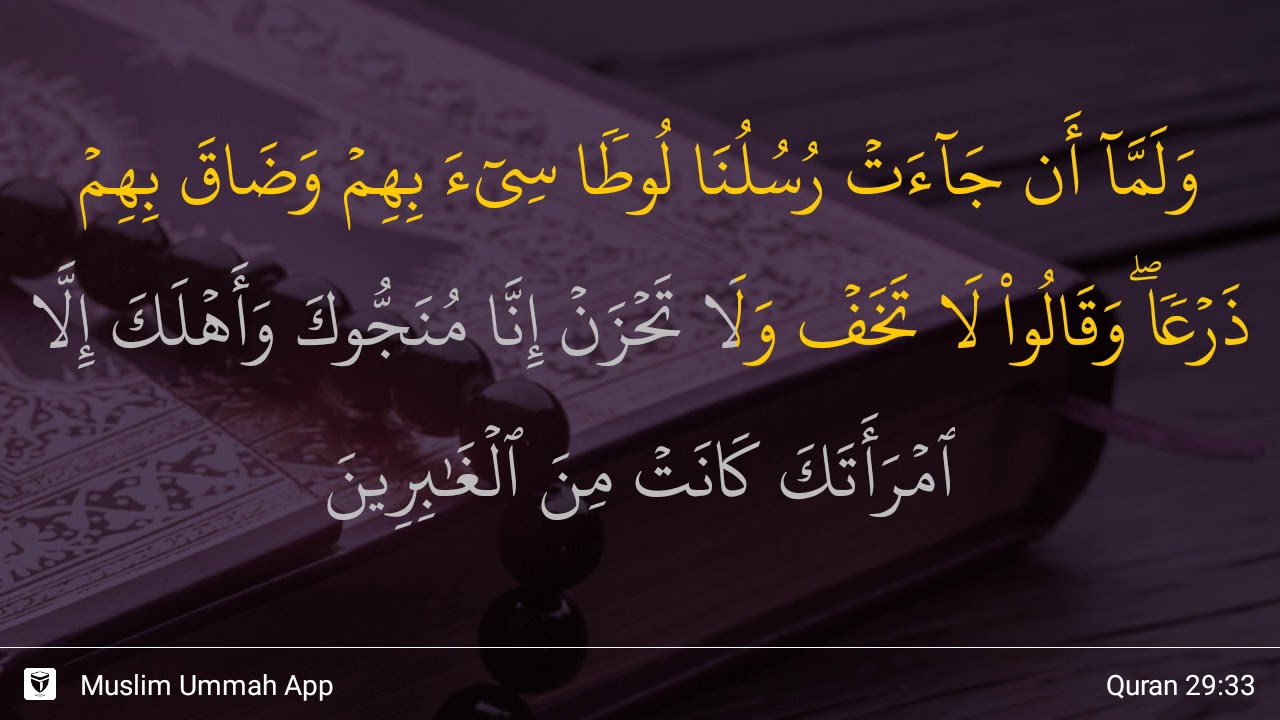 وَلَمَّآ أَن جَآءَتۡ رُسُلُنَا لُوطٗا سِيٓءَ بِهِمۡ وَضَاقَ بِهِمۡ
ذَرۡعٗاۖ وَقَالُواْ لَا تَخَفۡ وَلَا تَحۡزَنۡ إِنَّا مُنَجُّوكَ وَأَهۡلَكَ إِلَّا
ٱمۡرَأَتَكَ كَانَتۡ مِنَ ٱلۡغَٰبِرِينَ
Muslim Ummah App
Quran 29:33